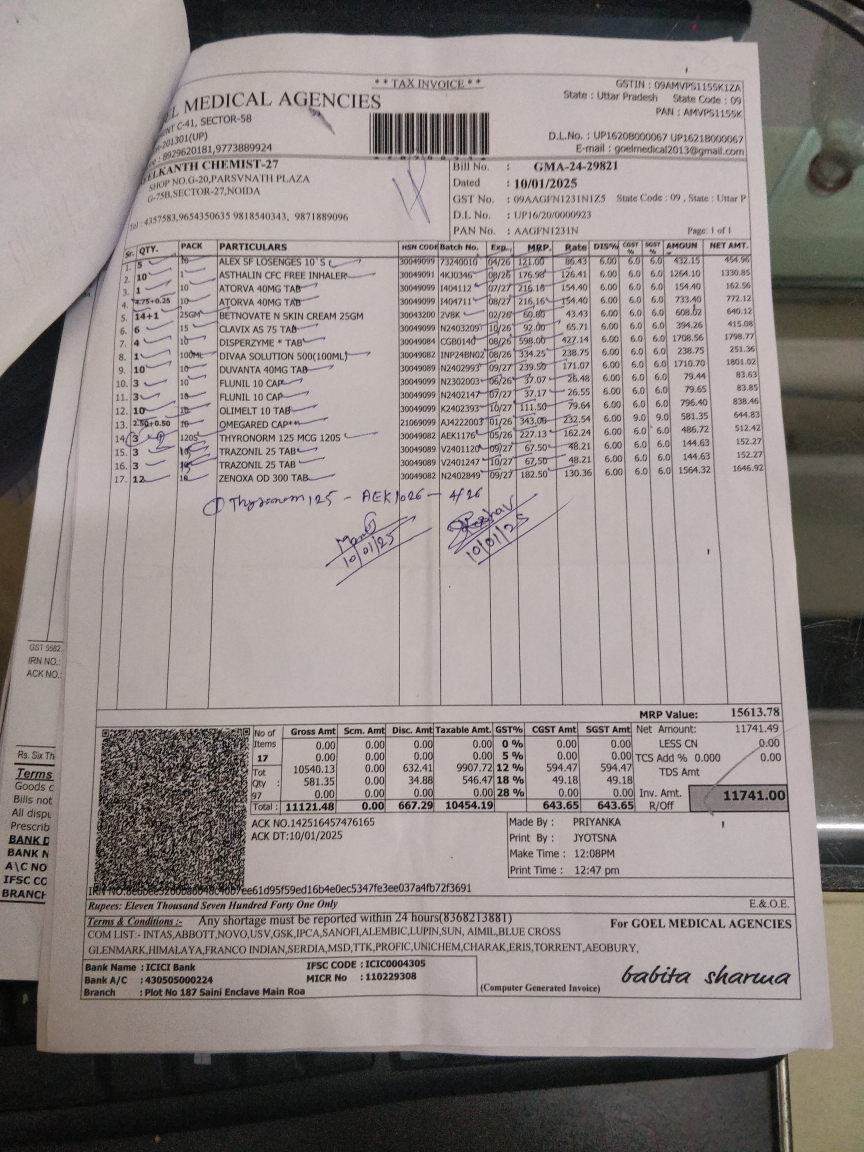 ** TAX INVOICE **
GSTIN : 09AMVPS1155K1ZA
State : Uttar Pradesh State Code : 09
PAN : AMVPS1155K
OEL MEDICAL AGENCIES
C-41, SECTOR-58
-201301(UP)
: 8929620181,9773889924
D.L.No. : UP1620B000067 UP16218000067
E-mail : goelmedical2013@gmail.com
ELKANTH CHEMIST-27
SHOP NO.G-20,PARSVNATH PLAZA
G-75B,SECTOR-27,NOIDA
Tel : 4357583,9654350635 9818540343, 9871889096
Bill No. : GMA-24-29821
Dated : 10/01/2025
GST No. : 09AAGFN1231N1Z5 State Code : 09 , State : Uttar P
D.L No. : UP16/20/0000923
PAN No. : AAGFN1231N Page: 1 of 1
Sr. QTY. PACK PARTICULARS HSN CODE Batch No. Exp. MRP. Rate DIS% CGST % SGST % AMOUN NET AMT.
1. 5 ALEX SF LOSENGES 10`S 30049099 73240010 04/26 121.00 86.43 6.00 6.0 6.0 432.15 454.96
2. 10 1 ASTHALIN CFC FREE INHALER 30049091 4KJ0346 08/26 176.98 126.41 6.00 6.0 6.0 1264.10 1330.85
3. 1 10 ATORVA 40MG TAB 30049099 I404112 07/27 216.16 154.40 6.00 6.0 6.0 154.40 162.56
4. 4.75+0.25 10 ATORVA 40MG TAB 30049099 I404711 08/27 216.16 154.40 6.00 6.0 6.0 733.40 772.12
5. 14+1 25GM BETNOVATE N SKIN CREAM 25GM 30043200 2V8K 02/26 60.80 43.43 6.00 6.0 6.0 608.02 640.12
6. 6 15 CLAVIX AS 75 TAB 30049099 N2403209 10/26 92.00 65.71 6.00 6.0 6.0 394.26 415.08
7. 4 10 DISPERZYME * TAB 30049084 CGB0140 08/26 598.00 427.14 6.00 6.0 6.0 1708.56 1798.77
8. 1 100ML DIVAA SOLUTION 500(100ML) 30049082 INP24BN02 08/26 334.25 238.75 6.00 6.0 6.0 238.75 251.36
9. 10 10 DUVANTA 40MG TAB 30049089 N2402993 09/27 239.50 171.07 6.00 6.0 6.0 1710.70 1801.02
10. 3 10 FLUNIL 10 CAP 30049089 N2302003 06/26 37.07 26.48 6.00 6.0 6.0 79.44 83.63
11. 3 10 FLUNIL 10 CAP 30049089 N2402147 07/27 37.17 26.55 6.00 6.0 6.0 79.65 83.85
12. 10 OLIMELT 10 TAB 30049089 K2402393 10/27 111.50 79.64 6.00 6.0 6.0 796.40 838.46
13. 2.50+0.50 10 OMEGARED CAP** 21069099 AJ4222003 01/26 343.00 232.54 6.00 9.0 9.0 581.35 644.83
14. 3 120S THYRONORM 125 MCG 120S 30049082 AEK1176 05/26 227.13 162.24 6.00 6.0 6.0 486.72 512.42
15. 3 TRAZONIL 25 TAB 30049089 V2401120 09/27 67.50 48.21 6.00 6.0 6.0 144.63 152.27
16. 3 TRAZONIL 25 TAB 30049089 V2401247 10/27 67.50 48.21 6.00 6.0 6.0 144.63 152.27
17. 12 ZENOXA OD 300 TAB 30049082 N2402849 09/27 182.50 130.36 6.00 6.0 6.0 1564.32 1646.92
① Thyronom 125 - AEK1026 - 4/26
10/01/25
10/01/25
MRP Value: 15613.78
No of Items 17 Tot Qty : 97
Gross Amt Scm. Amt Disc. Amt Taxable Amt. GST% CGST Amt SGST Amt
0.00 0.00 0.00 0.00 0 % 0.00 0.00
0.00 0.00 0.00 0.00 5 % 0.00 0.00
10540.13 0.00 632.41 9907.72 12 % 594.47 594.47
581.35 0.00 34.88 546.47 18 % 49.18 49.18
0.00 0.00 0.00 0.00 28 % 0.00 0.00
Total : 11121.48 0.00 667.29 10454.19 643.65 643.65
Net Amount: 11741.49
LESS CN 0.00
TCS Add % 0.000 0.00
TDS Amt
Inv. Amt. 11741.00
R/Off
ACK NO.142516457476165
ACK DT:10/01/2025
Made By : PRIYANKA
Print By : JYOTSNA
Make Time : 12:08PM
Print Time : 12:47 pm
ee61d95f59ed16b4e0ec5347fe3ee037a4fb72f3691
Rupees: Eleven Thousand Seven Hundred Forty One Only E.& O.E.
Terms & Conditions :- Any shortage must be reported within 24 hours(8368213881)
COM LIST:- INTAS,ABBOTT,NOVO,USV,GSK,IPCA,SANOFI,ALEMBIC,LUPIN,SUN, AIMIL,BLUE CROSS
GLENMARK,HIMALAYA,FRANCO INDIAN,SERDIA,MSD,TTK,PROFIC,UNICHEM,CHARAK,ERIS,TORRENT,AEOBURY,
For GOEL MEDICAL AGENCIES
Bank Name : ICICI Bank IFSC CODE : ICIC0004305
Bank A/C : 430505000224 MICR No : 110229308
Branch : Plot No 187 Saini Enclave Main Roa
(Computer Generated Invoice)
babita sharma
GST 5582
IRN NO.:
ACK NO.:
Rs. Six Th
Terms
Goods
Bills not
All dispu
Prescrib
BANK D
BANK N
A\C NO
IFSC CC
BRANCH